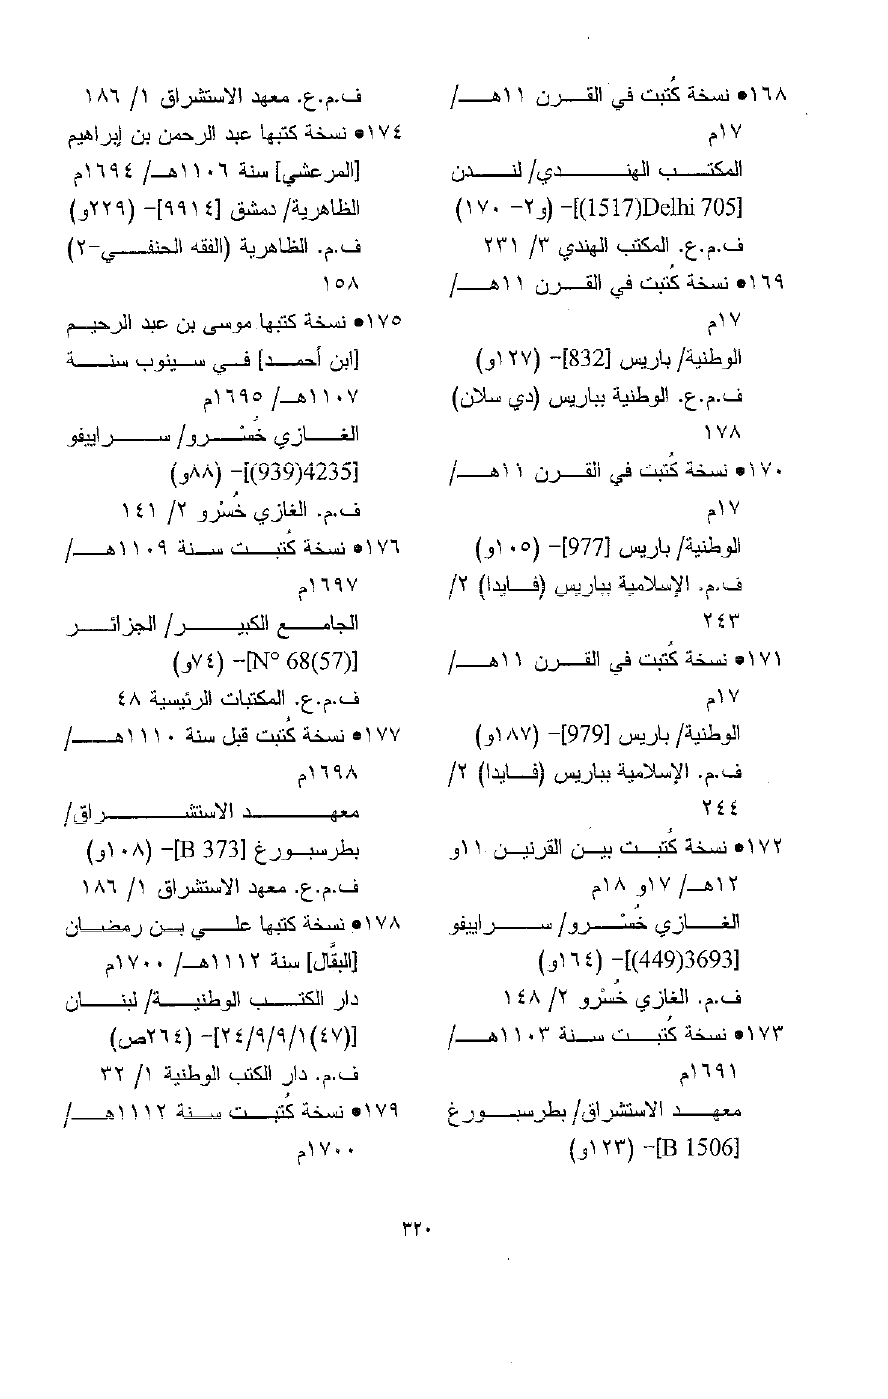 ١٦٨• نسخة كُتبت في القرن ١١هـ/
١٧م
المكتب الهندي/ لندن
[Delhi 705(1517)]- (و٢- ١٧٠)
ف.م.ع. المكتب الهندي ٣/ ٢٣١
١٦٩• نسخة كُتبت في القرن ١١هـ/
١٧م
الوطنية/ باريس [832]- (١٢٧و)
ف.م.ع. الوطنية بباريس (دي سلان)
١٧٨
١٧٠• نسخة كُتبت في القرن ١١هـ/
١٧م
الوطنية/ باريس [977]- (١٠٥و)
ف.م. الإسلامية بباريس (فايدا) ٢/
٢٤٣
١٧١• نسخة كُتبت في القرن ١١هـ/
١٧م
الوطنية/ باريس [979]- (١٨٧و)
ف.م. الإسلامية بباريس (فايدا) ٢/
٢٤٤
١٧٢• نسخة كُتبت بين القرنين ١١و
١٢هـ/ ١٧و ١٨م
الغازي خُسْرو/ سراييفو
[3693(449)]- (١٦٤و)
ف.م. الغازي خُسْرو ٢/ ١٤٨
١٧٣• نسخة كُتبت سنة ١١٠٣هـ/
١٦٩١م
معهد الاستشراق/ بطرسبورغ
[B 1506]- (١٢٣و)
ف.م.ع. معهد الاستشراق ١/ ١٨٦
١٧٤• نسخة كتبها عبد الرحمن بن إبراهيم
[المرعشي] سنة ١١٠٦هـ/ ١٦٩٤م
الظاهرية/ دمشق [٩٩١٤]- (٢٢٩و)
ف.م. الظاهرية (الفقه الحنفي-٢)
١٥٨
١٧٥• نسخة كتبها موسى بن عبد الرحيم
[ابن أحمد] في سينوب سنة
١١٠٧هـ/ ١٦٩٥م
الغازي خُسْرو/ سراييفو
[4235(939)]- (٨٨و)
ف.م. الغازي خُسْرو ٢/ ١٤١
١٧٦• نسخة كُتبت سنة ١١٠٩هـ/
١٦٩٧م
الجامع الكبير/ الجزائر
[N° 68(57)]- (٧٤و)
ف.م.ع. المكتبات الرئيسية ٤٨
١٧٧• نسخة كُتبت قبل سنة ١١١٠هـ/
١٦٩٨م
معهد الاستشراق/
بطرسبورغ [B 373]- (١٠٨و)
ف.م.ع. معهد الاستشراق ١/ ١٨٦
١٧٨• نسخة كتبها علي بن رمضان
[البقَّال] سنة ١١١٢هـ/ ١٧٠٠م
دار الكتب الوطنية/ لبنان
[(٤٧)٢٤/٩/٩/١]- (٢٦٤ص)
ف.م. دار الكتب الوطنية ١/ ٣٢
١٧٩• نسخة كُتبت سنة ١١١٢هـ/
١٧٠٠م
٣٢٠